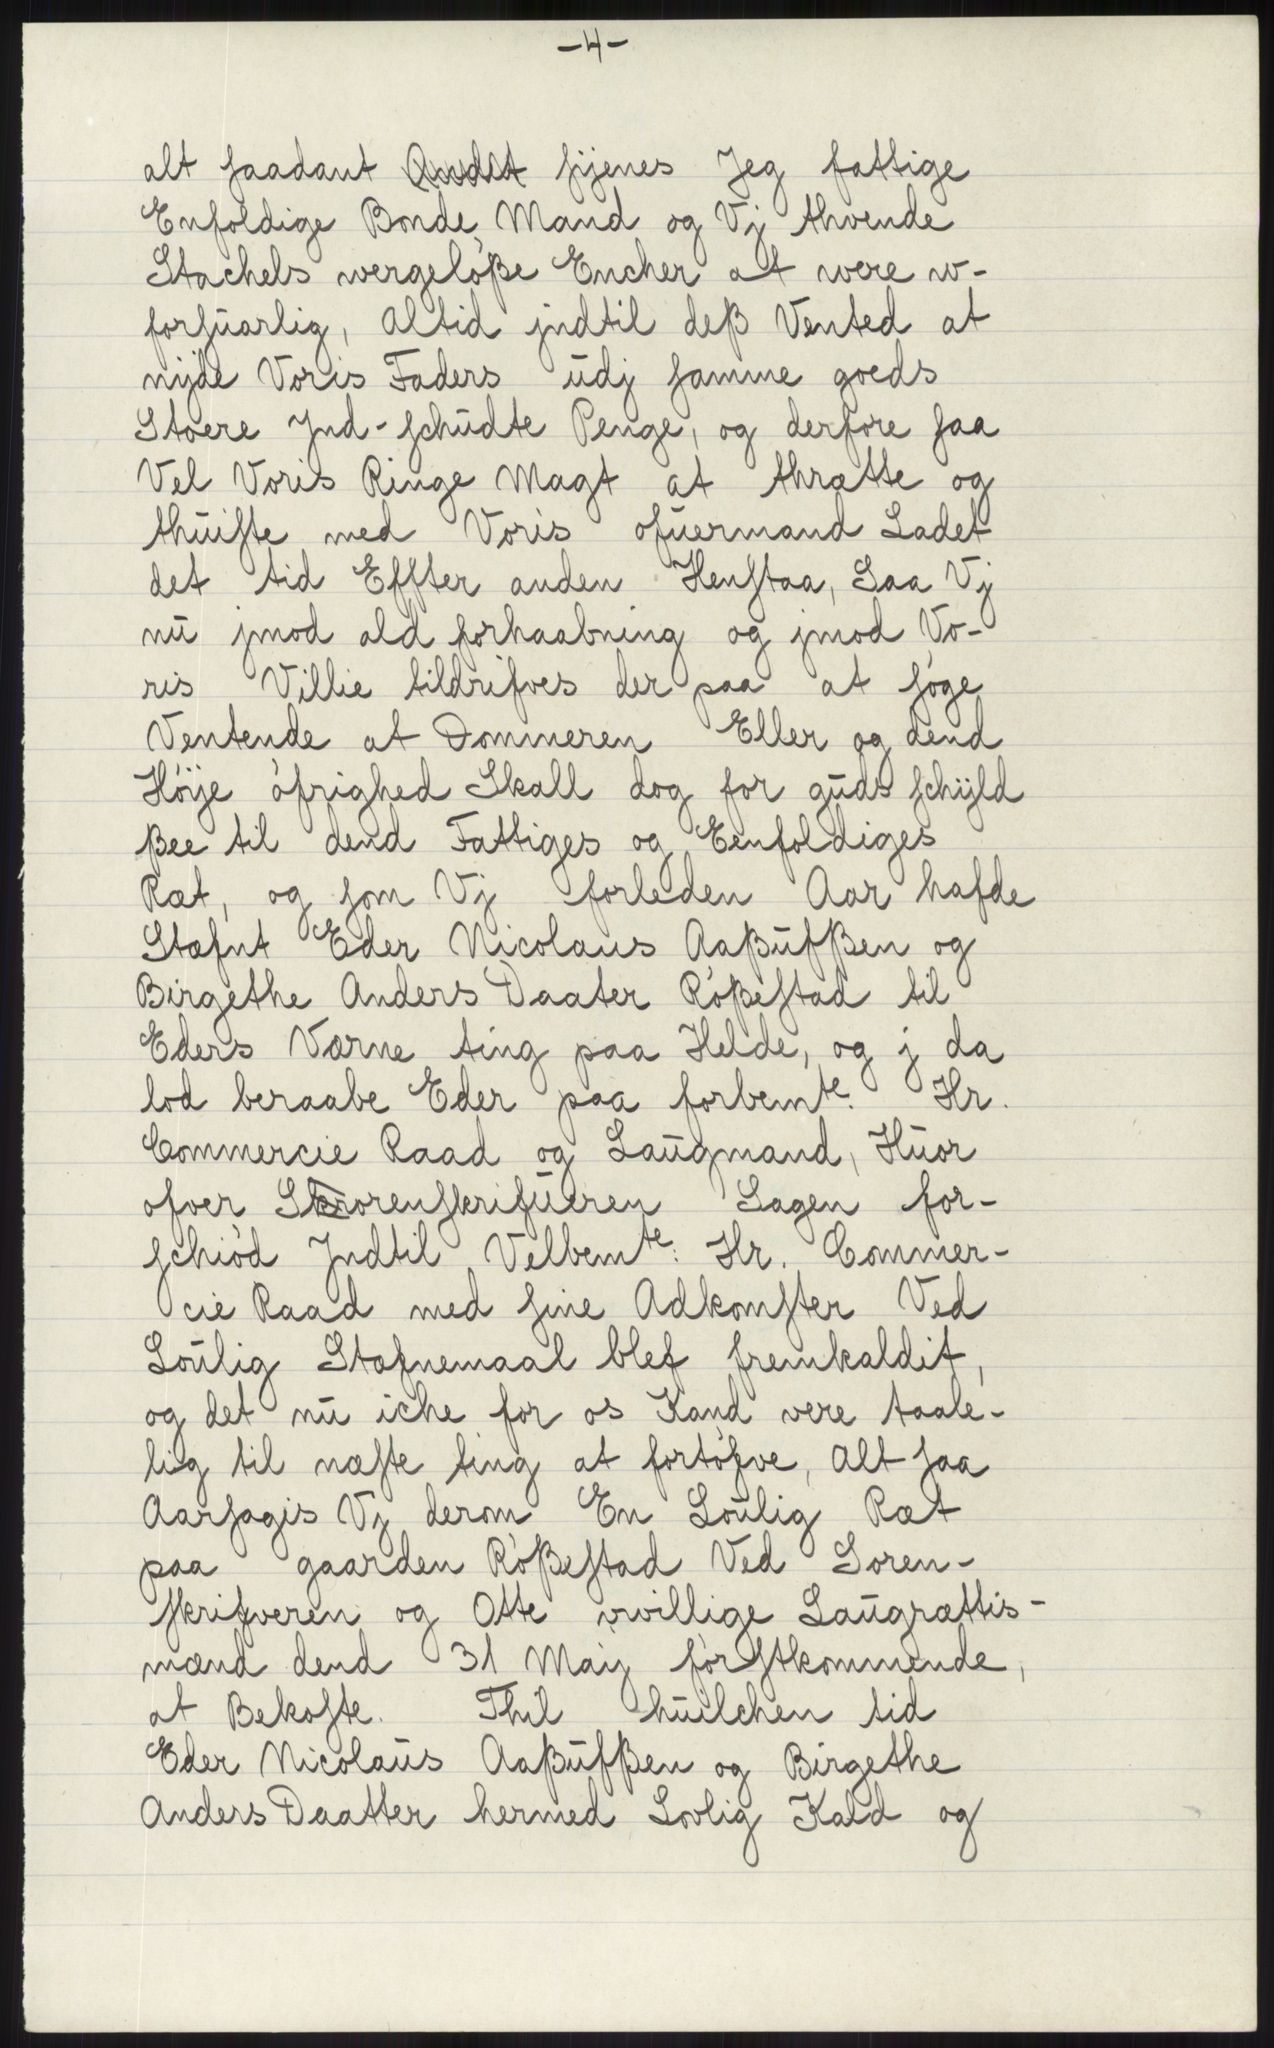 -4-
alt saadant Andit sÿenes Jeg fattige
Enfoldige Bonde Mand og Vj thvende
Stachels wergelöße Encher at were w-
forsuarlig, Altid jndtil deß Vented at
nyde Voris Faders udj samme goeds
Stoere Jnd-schudte Penge, og derfore saa
Vel Voris Ringe Magt at thrætte og
thuiste med Voris ofuermand Ladet
det tid Effter anden Henstaa, Saa Vj
nu jmod ald forhaabning og jmod Vo-
ris Villie tildrifves der paa at søge
Ventende at Dommeren Eller og dend
Höÿe öfrighed Skall dog for guds schÿld
ßee til dend Fattiges og Eenfoldiges
Ræt, og som Vj forleden Aar hafde
Stæfnt Eder Nicolaus Aaßufßen og
Birgethe Anders Daater Rößestad til
Eders Værne ting paa Helde, og j da
lod beraabe Eder paa forbemte: Hr.
Commercie Raad og Laugmand, Huor
ofver Skrorenskrifueren Sagen for-
schiöd Jndtil Velbemte: Hr. Commer-
cie Raad med sine Adkomster Ved
Loulig Stæfnemaal blef fremkaldit,
og det nu iche for os Kand vere taale-
lig til næste ting at fortöfve, Alt saa
Aarsagis Vj derom En Loulig Ræt
paa gaarden Rößestad Ved Soren-
skrifveren og Otte uvillige Laugrættis-
mænd dend 31 Maij förstkommende,
at Bekoste. Thil huilchen tid
Eder Nicolaus Aaßufßen og Birgethe
Anders Daatter hermed Lovlig Kald og